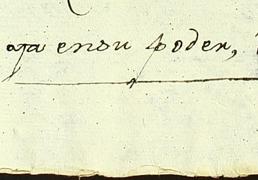 aja ensu poder,